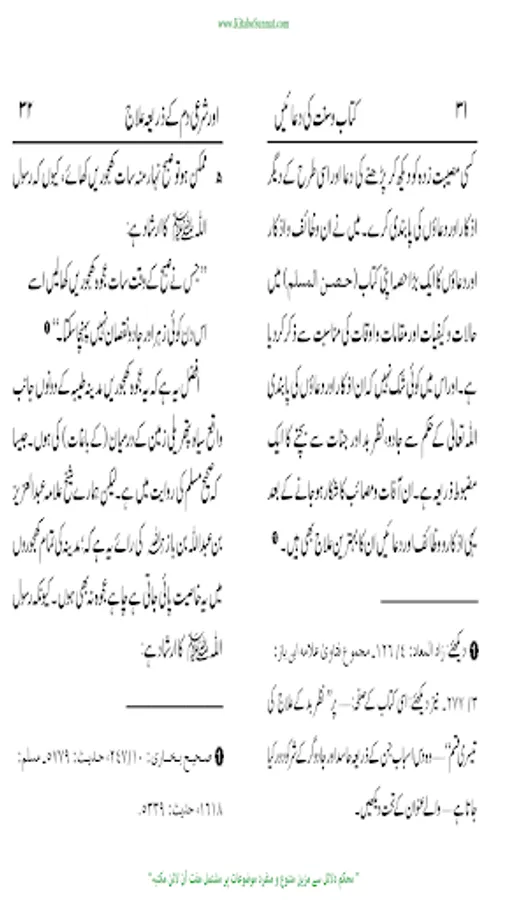 www.KitaboSunnat.com
کتاب وسنت کی دعائیں ۳۱
کسی مصیبت زدہ کو دیکھ کر پڑھنے کی دعا اور اسی طرح کے دیگر
اذکار اور دعاؤں کی پابندی کرے۔ میں نے ان وظائف و اذکار
اور دعاؤں کا ایک بڑا حصہ اپنی کتاب (حصن المسلم) میں
حالات و کیفیات اور مقامات و اوقات کی مناسبت سے ذکر کر دیا
ہے۔ اور اس میں کوئی شک نہیں کہ ان اذکار اور دعاؤں کی پابندی
اللہ تعالیٰ کے حکم سے جادو، نظر بد اور جنات سے بچنے کا ایک
مضبوط ذریعہ ہے۔ ان آفات و مصائب کا شکار ہو جانے کے بعد
یہی اذکار و وظائف اور دعائیں ان کا بہترین علاج بھی ہیں۔ ❶
❶ دیکھئے: زاد المعاد: ۴/۱۲۶۔ مجموع فتاویٰ علامہ ابن باز:
۳/۲۷۷۔ نیز دیکھئے: اسی کتاب کے صفحہ: — پر "نظر بد کے علاج کی
تیسری قسم" — وہ دس اسباب جن کے ذریعہ حاسد اور جادوگر کے شر کو دور کیا
جاتا ہے — والے عنوان کے تحت دیکھیں۔
اور شرعی دم کے ذریعہ علاج ۳۲
۵ ممکن ہو تو صبح نہار منہ سات کھجوریں کھائے، کیوں کہ رسول
اللہ ﷺ کا ارشاد ہے:
"جس نے صبح کے وقت سات عجوہ کھجوریں کھا لیں اسے
اس دن کوئی زہر اور جادو نقصان نہیں پہنچا سکتا۔" ❶
افضل یہ ہے کہ یہ عجوہ کھجوریں مدینہ طیبہ کے دونوں جانب
واقع سیاہ پتھریلی زمین کے درمیان (کے باغات) کی ہوں۔ جیسا
کہ صحیح مسلم کی روایت میں ہے۔ لیکن ہمارے شیخ علامہ عبدالعزیز
بن عبداللہ بن باز رحمہ اللہ کی رائے یہ ہے کہ مدینہ کی تمام کھجوروں
میں یہ خاصیت پائی جاتی ہے چاہے عجوہ نہ بھی ہوں۔ کیونکہ رسول
اللہ ﷺ کا ارشاد ہے:
❶ صحیح بخاری: ۱۰/۲۴۷، حدیث: ۵۷۷۹۔ مسلم:
۱۶۱۸، حدیث: ۵۳۳۹۔
"محکم دلائل سے مزین متنوع و منفرد موضوعات پر مشتمل مفت آن لائن مکتبہ"